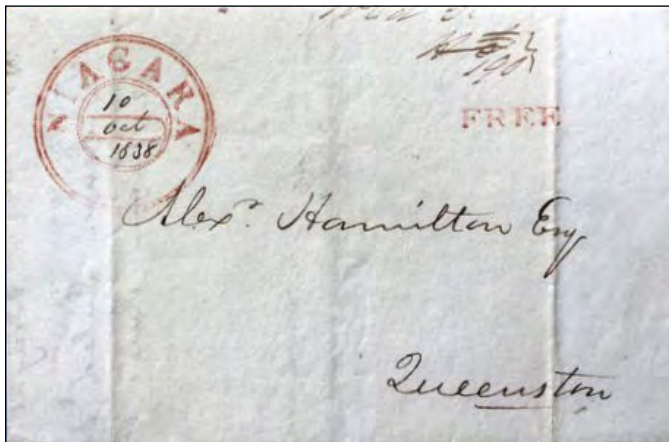 NIAGARA
10
Oct
1838
FREE
Alexr. Hamilton Esq
Queenston